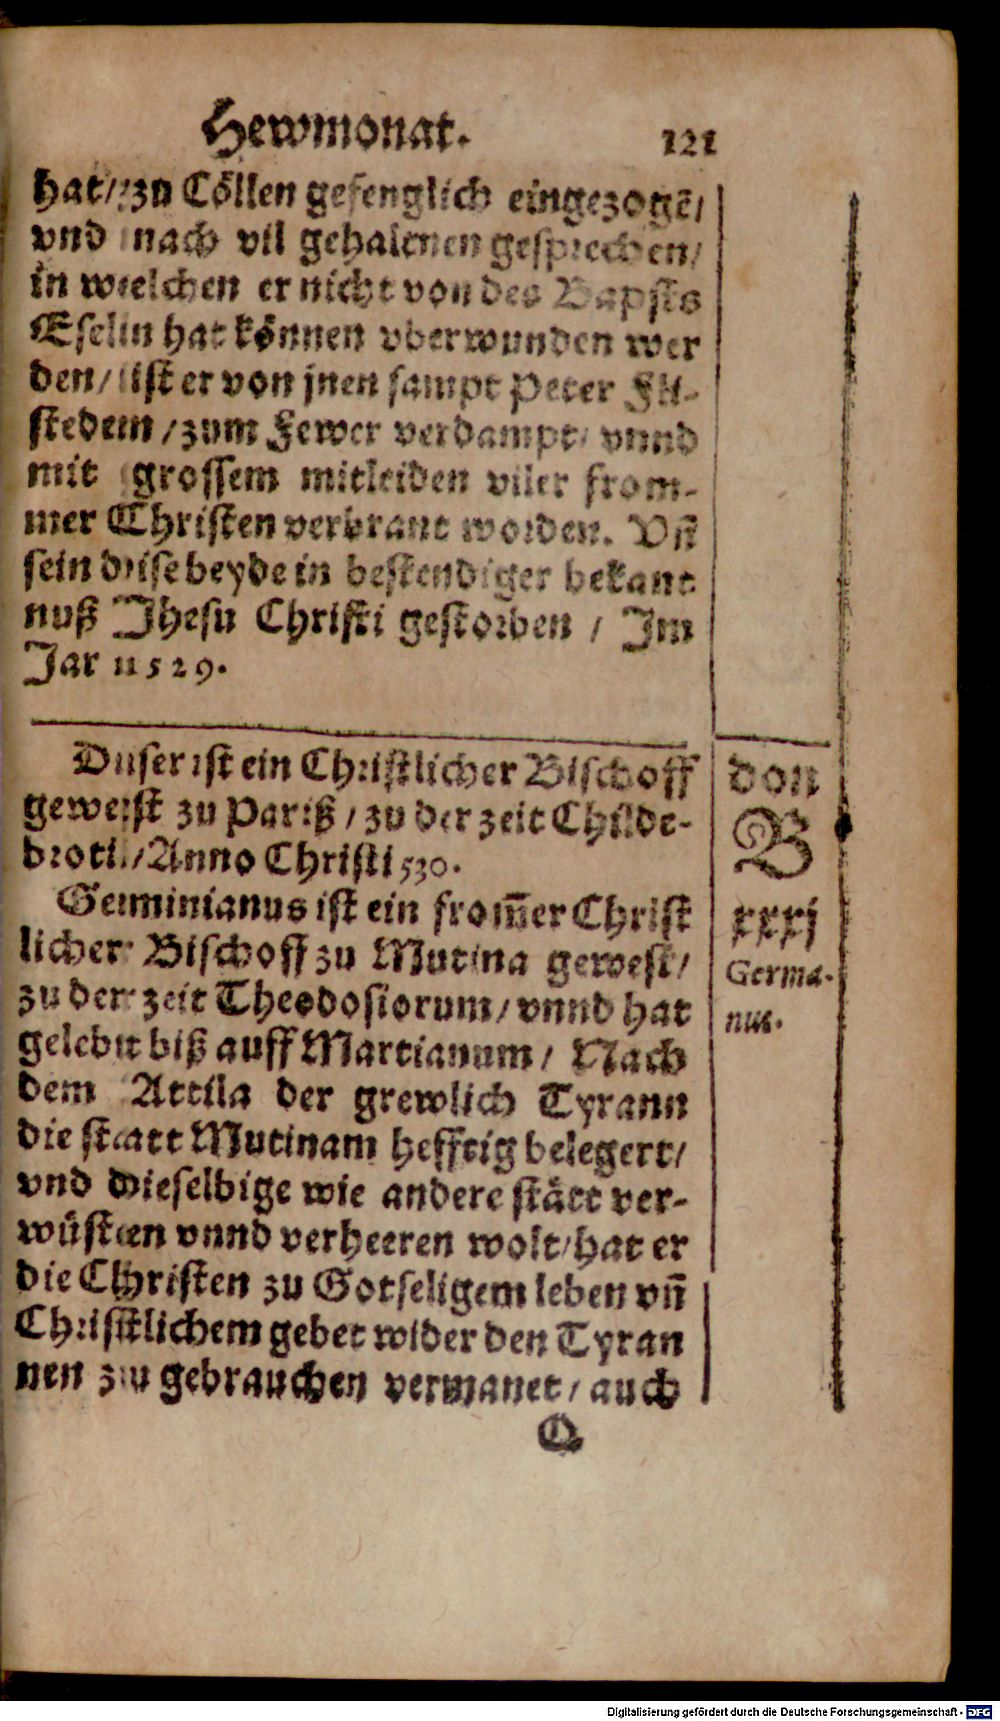 Hewmonat. 121
hat/ zu Cöllen gefenglich eingezogē/
vnd nach vil gehaltnen gesprechen/
in welchen er nicht von des Bapsts
Eseln hat können vberwunden wer
den/ ist er von jnen sampt Peter Fli-
stedem / zum Fewer verdampt/ vnnd
mit grossem mitleiden viler from-
mer Christen verbrant worden. Vñ
sein dise beyde in bestendiger bekant
nuß Jhesu Christi gestorben / Im
Jar 1529.
Diser ist ein Christlicher Bischoff
gewest zu Pariß / zu der zeit Childe-
broti / Anno Christi 530.
Geminianus ist ein from̃er Christ
licher Bischoff zu Mutina gewest/
zu der zeit Theodosiorum/ vnnd hat
gelebt biß auff Martianum / Nach
dem Attila der grewlich Tyrann
die statt Mutinam hefftig belegert/
vnd dieselbige wie andere stätt ver-
wüsten vnnd verheeren wolt/ hat er
die Christen zu Gotseligem leben vñ
Christlichem gebet wider den Tyran
nen zu gebrauchen vermanet / auch
Q
don
B
xxxj
Germa-
nus.
Digitalisierung gefördert durch die Deutsche Forschungsgemeinschaft - DFG